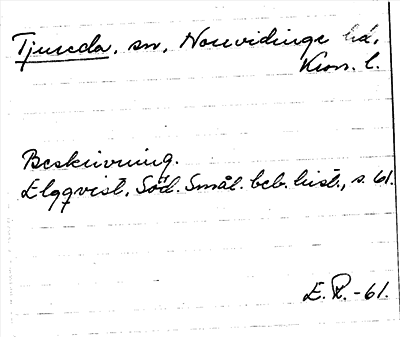 Tjureda, sn, Norrvidinge hd,
Kron. l.
Beskrivning.
Elgqvist, Söd. Smål. beb. hist., s. 61.
E.R. -61.